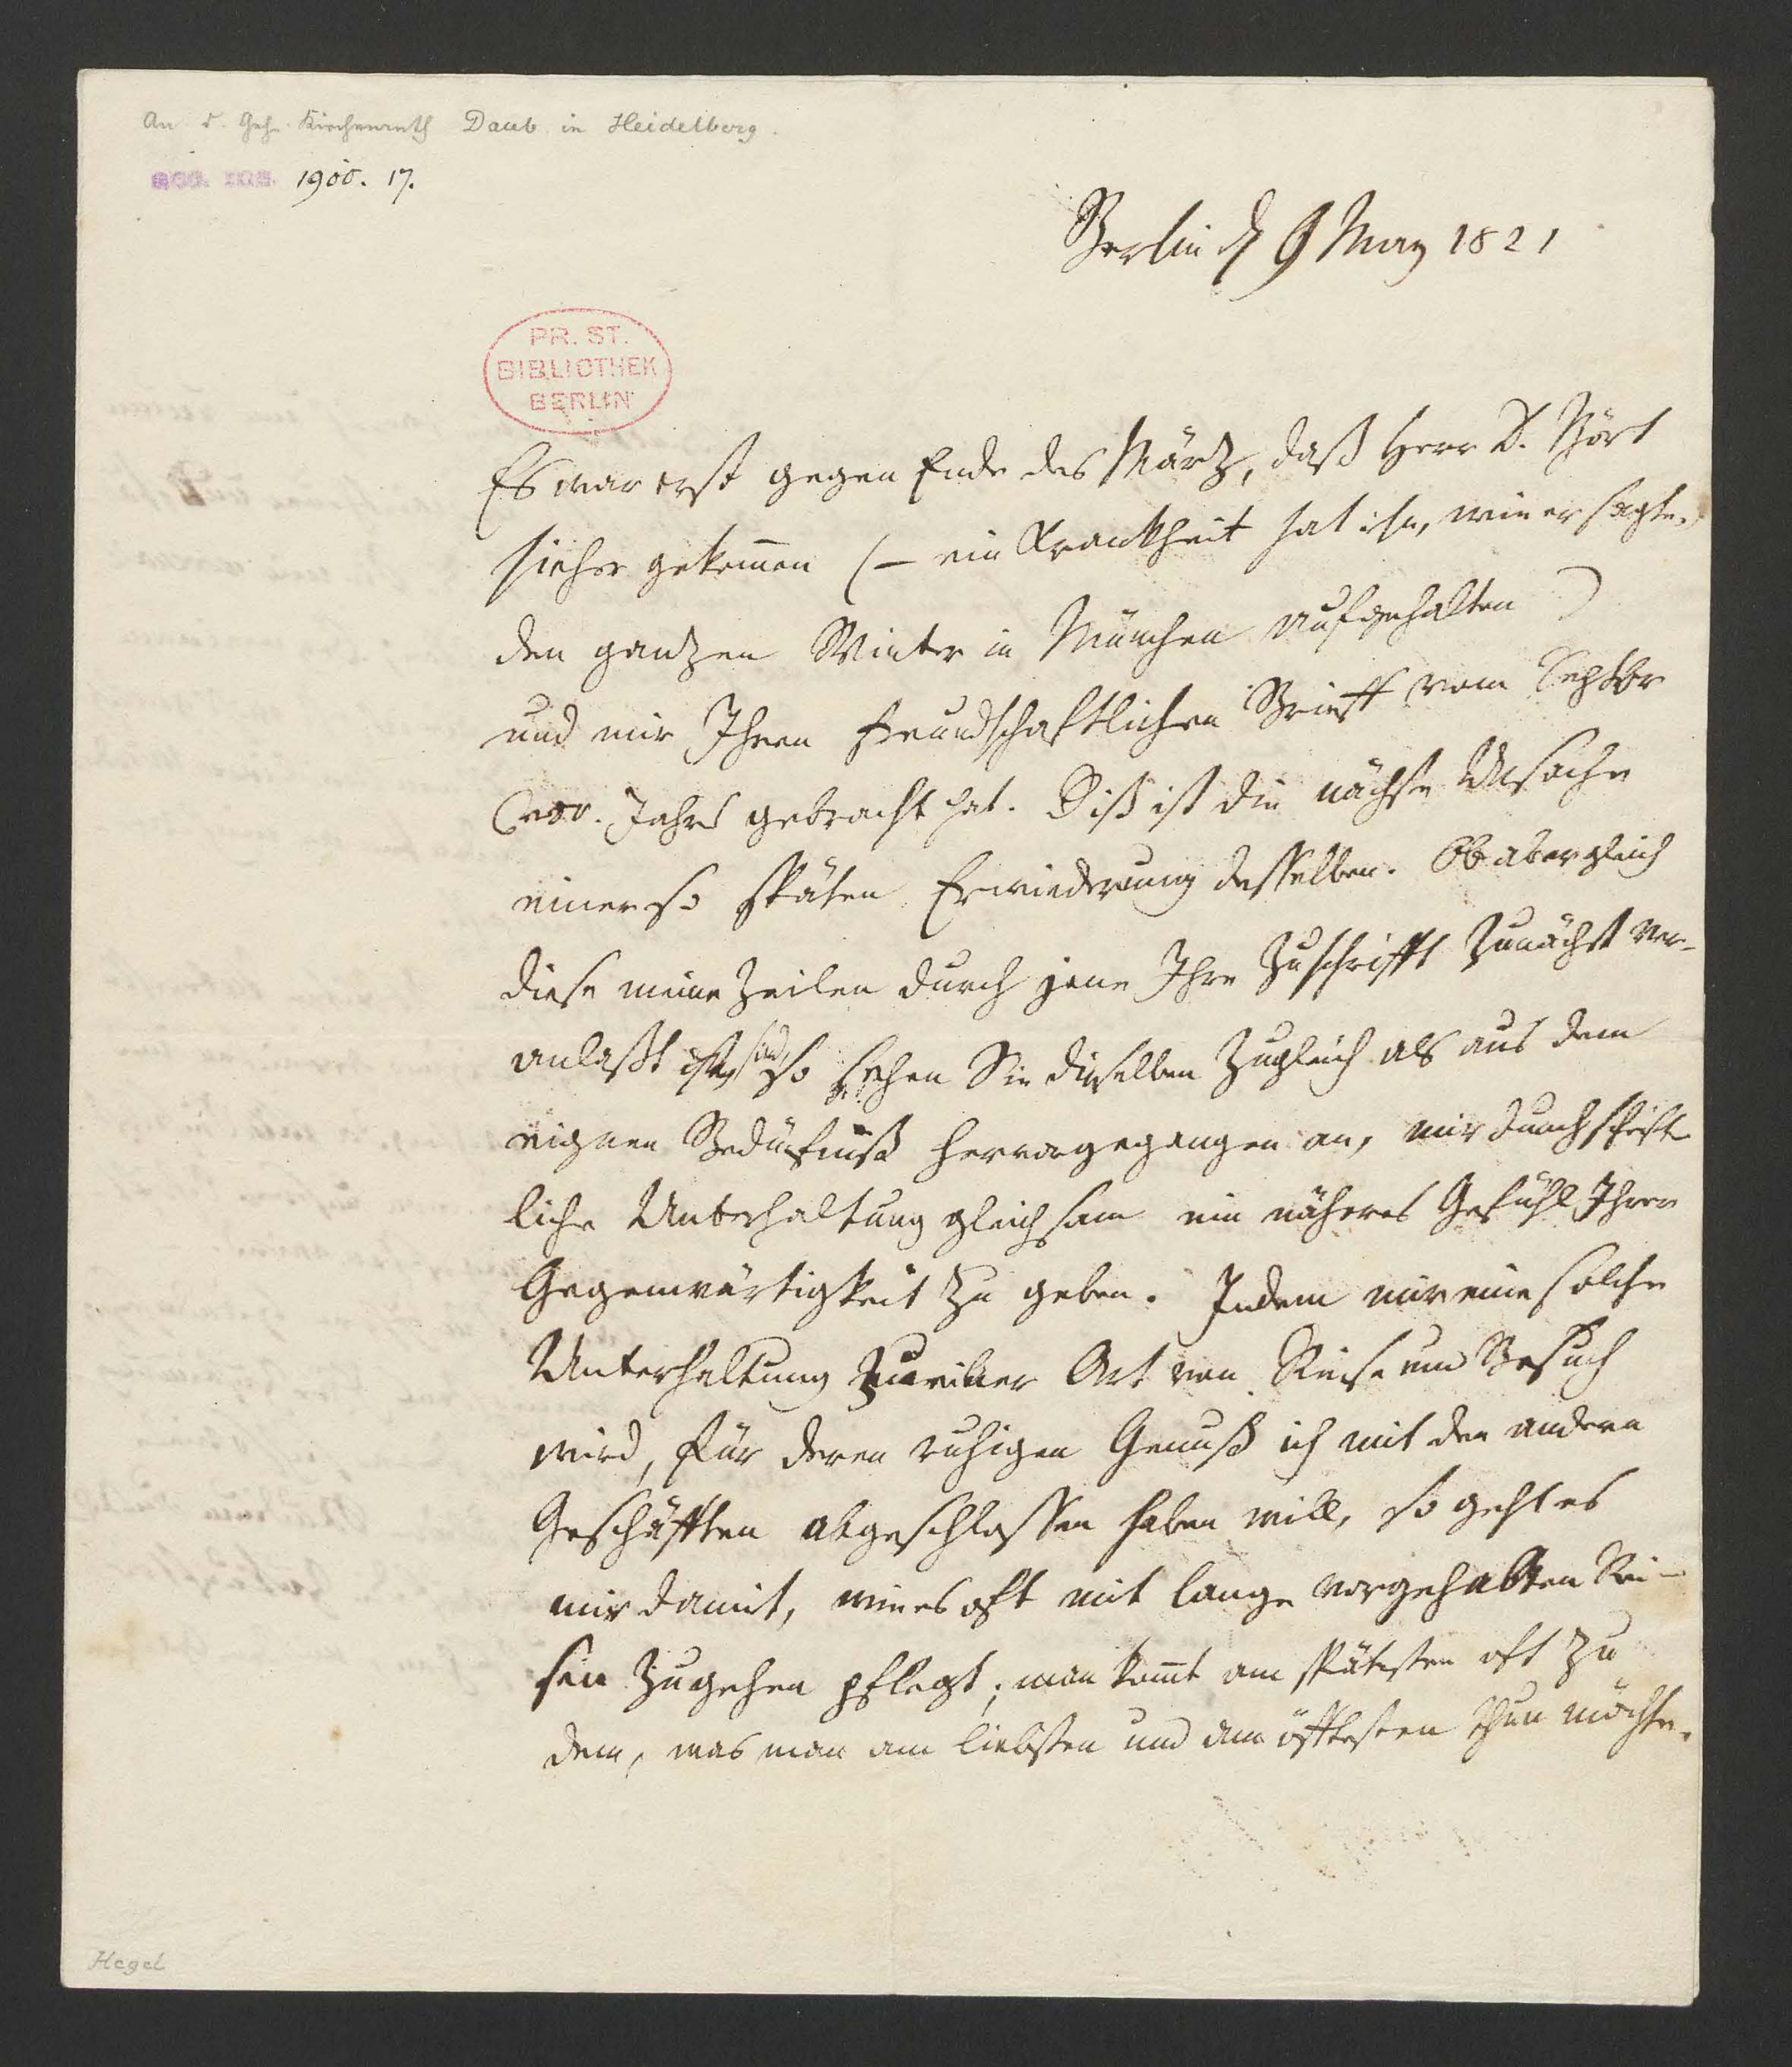 An d. Geh. Kirchenrath Daub in Heidelberg.
acc. 1900. 17.
Berlin d 9 May 1821
PR. ST.
BIBLIOTHEK
BERLIN
Es war erst gegen Ende des März, daß Herr D.
hieher gekom̄en (– ein Krankheit hat ihn, wie er sagte,
den ganzen Winter in München aufgehalten)
und mir Ihren freundschaftlichen Brieff vom Septbr
vor. Jahrs gebracht hat. Diß ist die nächste Ursache
einer so späten Erwiederung desselben. Ob aber gleich
diese meine Zeilen durch jene Ihre Zuschrifft zunächst ver-
anlaßt sind, so sehen Sie dieselben zugleich als aus dem
eignen Bedürfniß hervorgegangen an, mir durch schrift
liche Unterhaltung gleichsam ein näheres Gefühl Ihrer
Gegenwärtigkeit zu geben. Indem mir eine solche
Unterhaltung zu einer Art von Reise und Besuch
wird, für deren ruhigen Genuß ich mit den andern
Geschäfften abgeschlossen haben will, so geht es
mir damit, wie es oft mit lange vorgehabten Rei-
sen zugehen pflegt; man kom̄t am spätesten oft zu
dem, was man am liebsten und am öfftesten thun möchte.
Hegel